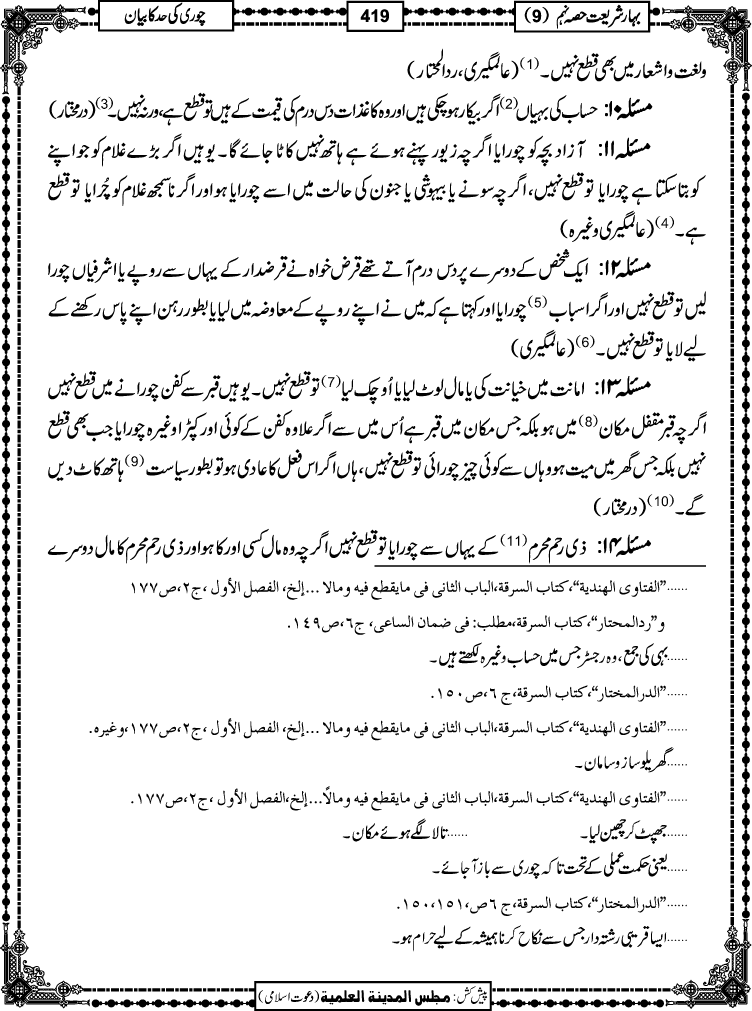 بہار شریعت حصہ نہم (9)
419
چوری کی حد کا بیان
ولغت و اشعار میں بھی قطع نہیں۔(1) (عالمگیری، ردالمحتار)
مسئلہ ۱۰: حساب کی بہیاں(2) اگر بیکار ہوچکی ہیں اور وہ کاغذات دس درم کی قیمت کے ہیں تو قطع ہے، ورنہ نہیں۔(3) (درمختار)
مسئلہ ۱۱: آزاد بچہ کو چورایا اگرچہ زیور پہنے ہوئے ہے ہاتھ نہیں کاٹا جائے گا۔ یوہیں اگر بڑے غلام کو جو اپنے
کو بتا سکتا ہے چورایا تو قطع نہیں، اگرچہ سونے یا بیہوشی یا جنون کی حالت میں اسے چورایا ہو اور اگر ناسمجھ غلام کو چُرایا تو قطع
ہے۔(4) (عالمگیری وغیرہ)
مسئلہ ۱۲: ایک شخص کے دوسرے پر دس درم آتے تھے قرض خواہ نے قرضدار کے یہاں سے روپے یا اشرفیاں چورا
لیں تو قطع نہیں اور اگر اسباب(5) چورایا اور کہتا ہے کہ میں نے اپنے روپے کے معاوضہ میں لیا یا بطور رہن اپنے پاس رکھنے کے
لیے لایا تو قطع نہیں۔(6) (عالمگیری)
مسئلہ ۱۳: امانت میں خیانت کی یا مال لوٹ لیا یا اُوچک لیا(7) تو قطع نہیں۔ یوہیں قبر سے کفن چورانے میں قطع نہیں
اگرچہ قبر مقفل مکان(8) میں ہو بلکہ جس مکان میں قبر ہے اُس میں سے اگر علاوہ کفن کے کوئی اور کپڑا وغیرہ چورایا جب بھی قطع
نہیں بلکہ جس گھر میں میت ہو وہاں سے کوئی چیز چورائی تو قطع نہیں، ہاں اگر اس فعل کا عادی ہو تو بطور سیاست(9) ہاتھ کاٹ دیں
گے۔(10) (درمختار)
مسئلہ ۱۴: ذی رحم محرم(11) کے یہاں سے چورایا تو قطع نہیں اگرچہ وہ مال کسی اور کا ہو اور ذی رحم محرم کا مال دوسرے
......”الفتاوی الهندیة“،کتاب السرقة،الباب الثانی فی مایقطع فیه ومالا ...إلخ، الفصل الأول ،ج۲،ص۱۷۷
و”ردالمحتار“،کتاب السرقة،مطلب: فی ضمان الساعی، ج٦،ص۱٤۹.
......بہی کی جمع، وہ رجسٹر جس میں حساب وغیرہ لکھتے ہیں۔
......”الدرالمختار“، کتاب السرقة،ج ٦،ص۱۵۰.
......”الفتاوی الهندیة“،کتاب السرقة،الباب الثانی فی مایقطع فیه ومالا ...إلخ، الفصل الأول ،ج۲،ص۱۷۷،وغیره.
......گھریلو ساز و سامان۔
......”الفتاوی الهندیة“،کتاب السرقة،الباب الثانی فی مایقطع فیه ومالًا...إلخ،الفصل الأول ،ج۲،ص۱۷۷.
......جھپٹ کر چھین لیا۔ ......تالا لگے ہوئے مکان۔
......یعنی حکمت عملی کے تحت تاکہ چوری سے باز آجائے۔
......”الدرالمختار“، کتاب السرقة، ج ٦ص،۱۵۰،۱۵۱.
......ایسا قریبی رشتہ دار جس سے نکاح کرنا ہمیشہ کے لیے حرام ہو۔
پیش کش: مجلس المدینة العلمیة (دعوت اسلامی)